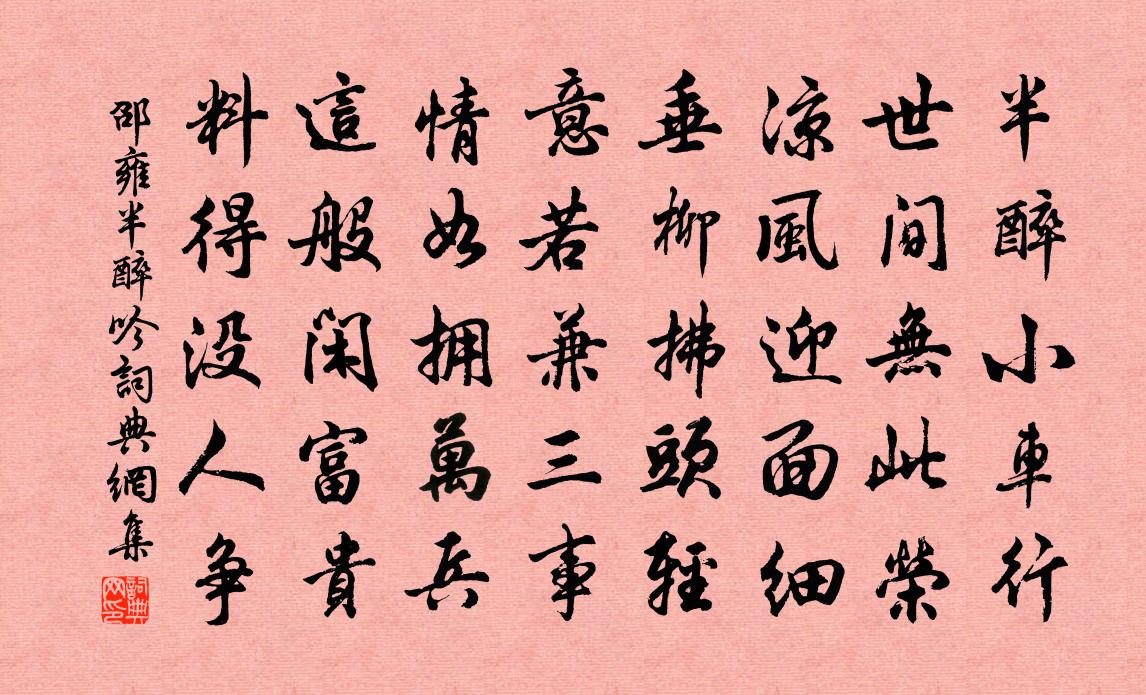 半醉小車行
世间無此榮
涼風迎面细
垂柳拂頭輕
意若兼三事
情如拥萬兵
這般闲富貴
料得没人争
邵雍半醉吟詞典網集
詞典
网印